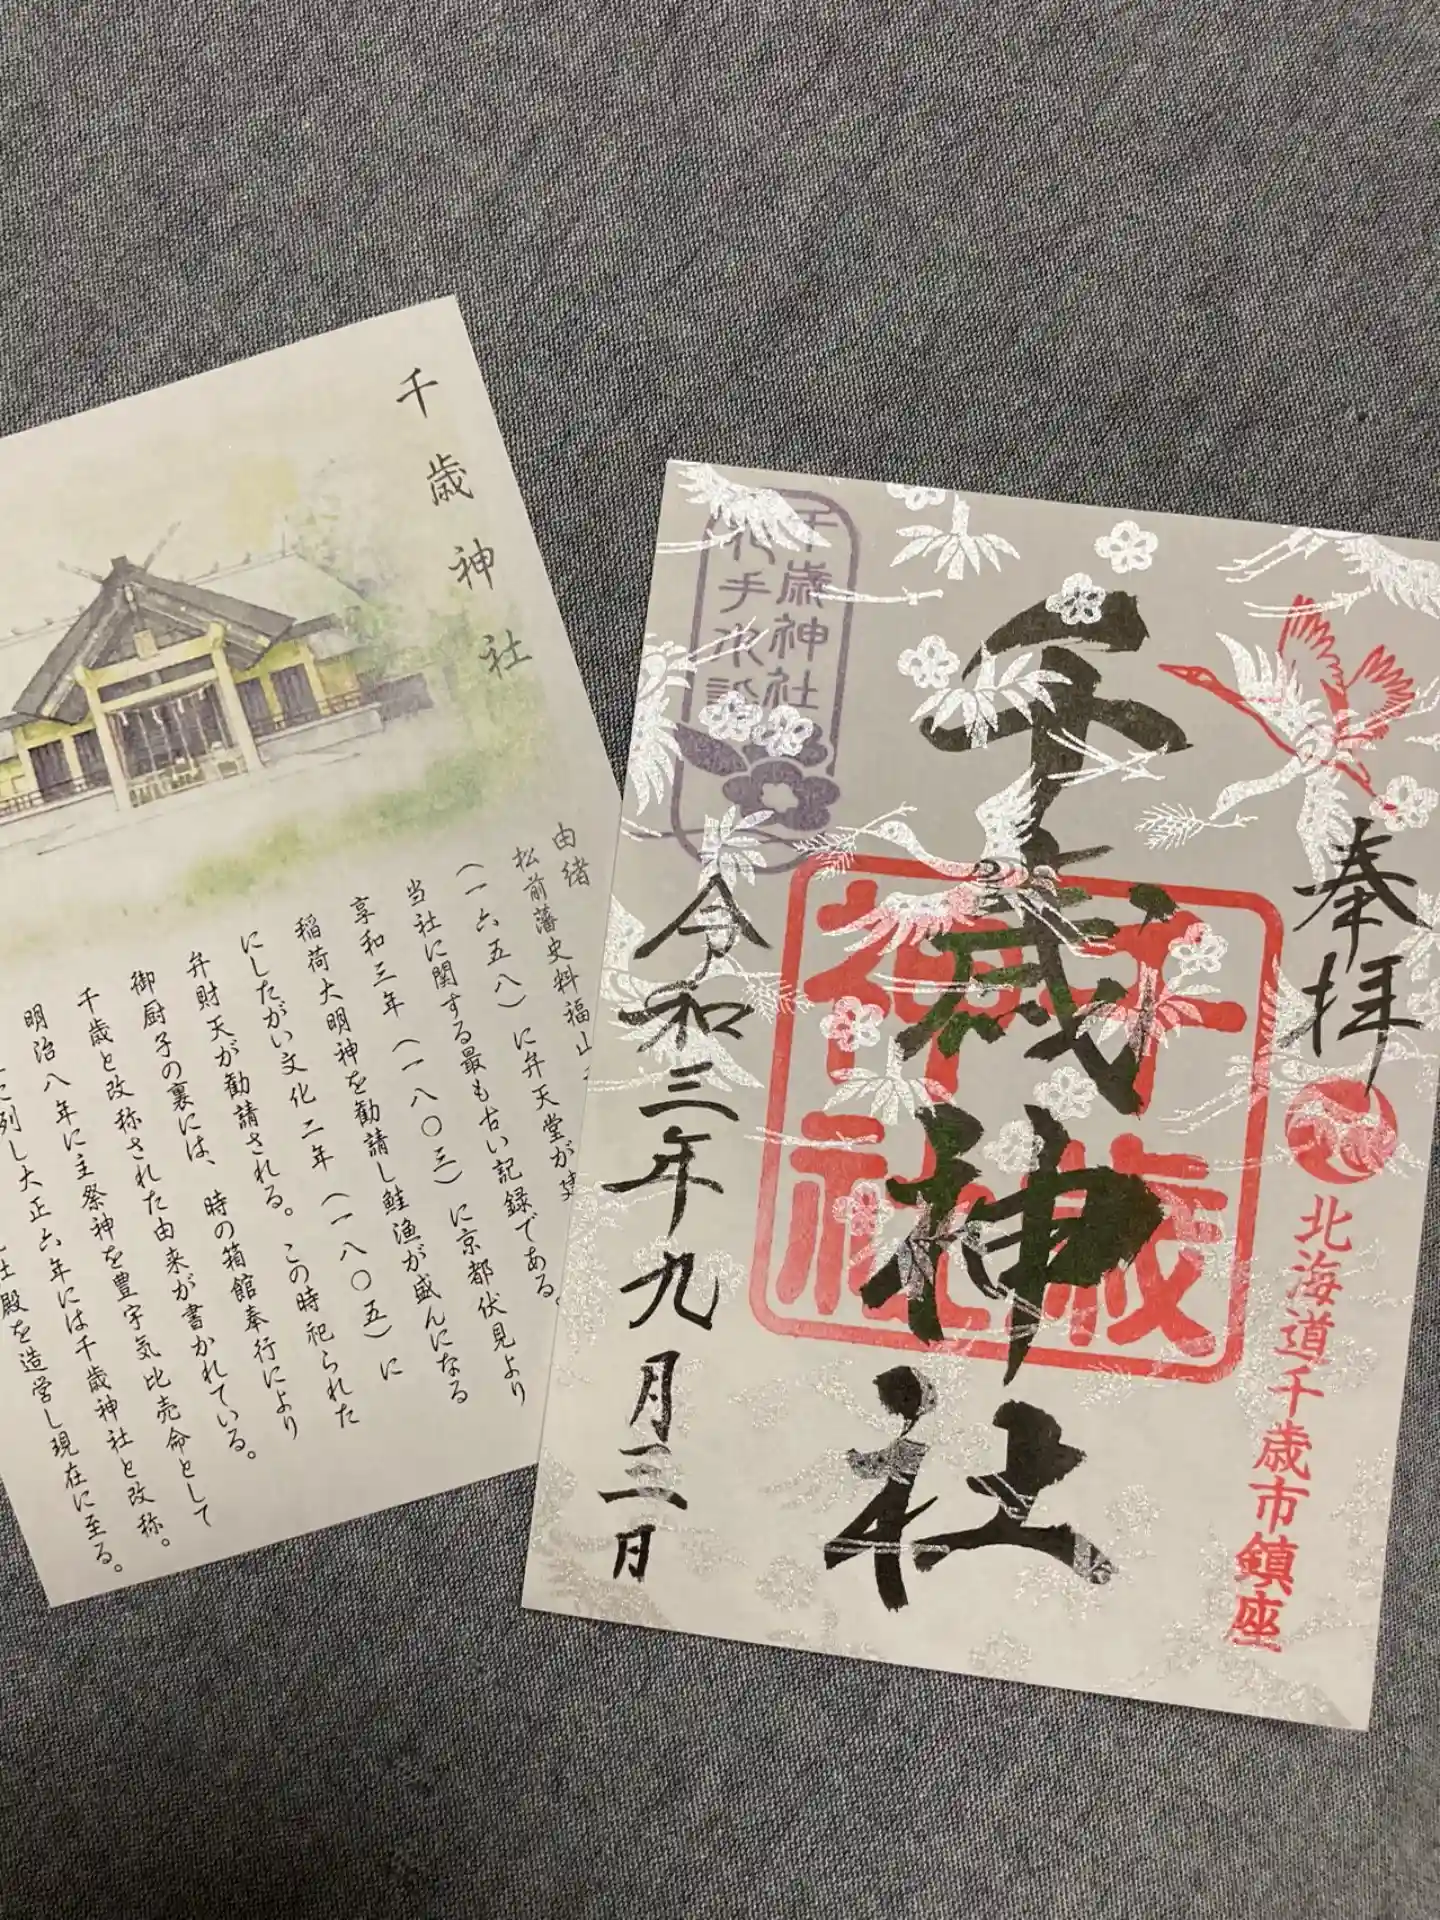 千歳神社
由緒
松前藩史料福山
（一六五八）に弁天堂が建
当社に関する最も古い記録である。
享和三年（一八〇三）に京都伏見より
稲荷大明神を勧請し鮭漁が盛んになる
にしたがい文化二年（一八〇五）に
弁財天が勧請される。この時祀られた
御厨子の裏には、時の箱館奉行により
千歳と改称された由来が書かれている。
明治八年に主祭神を豊宇気比売命として
に列し大正六年には千歳神社と改称。
社殿を造営し現在に至る。
奉拝
北海道千歳市鎮座
千歳神社
千歳神社
令和三年九月三日
千歳神社
花手水詣